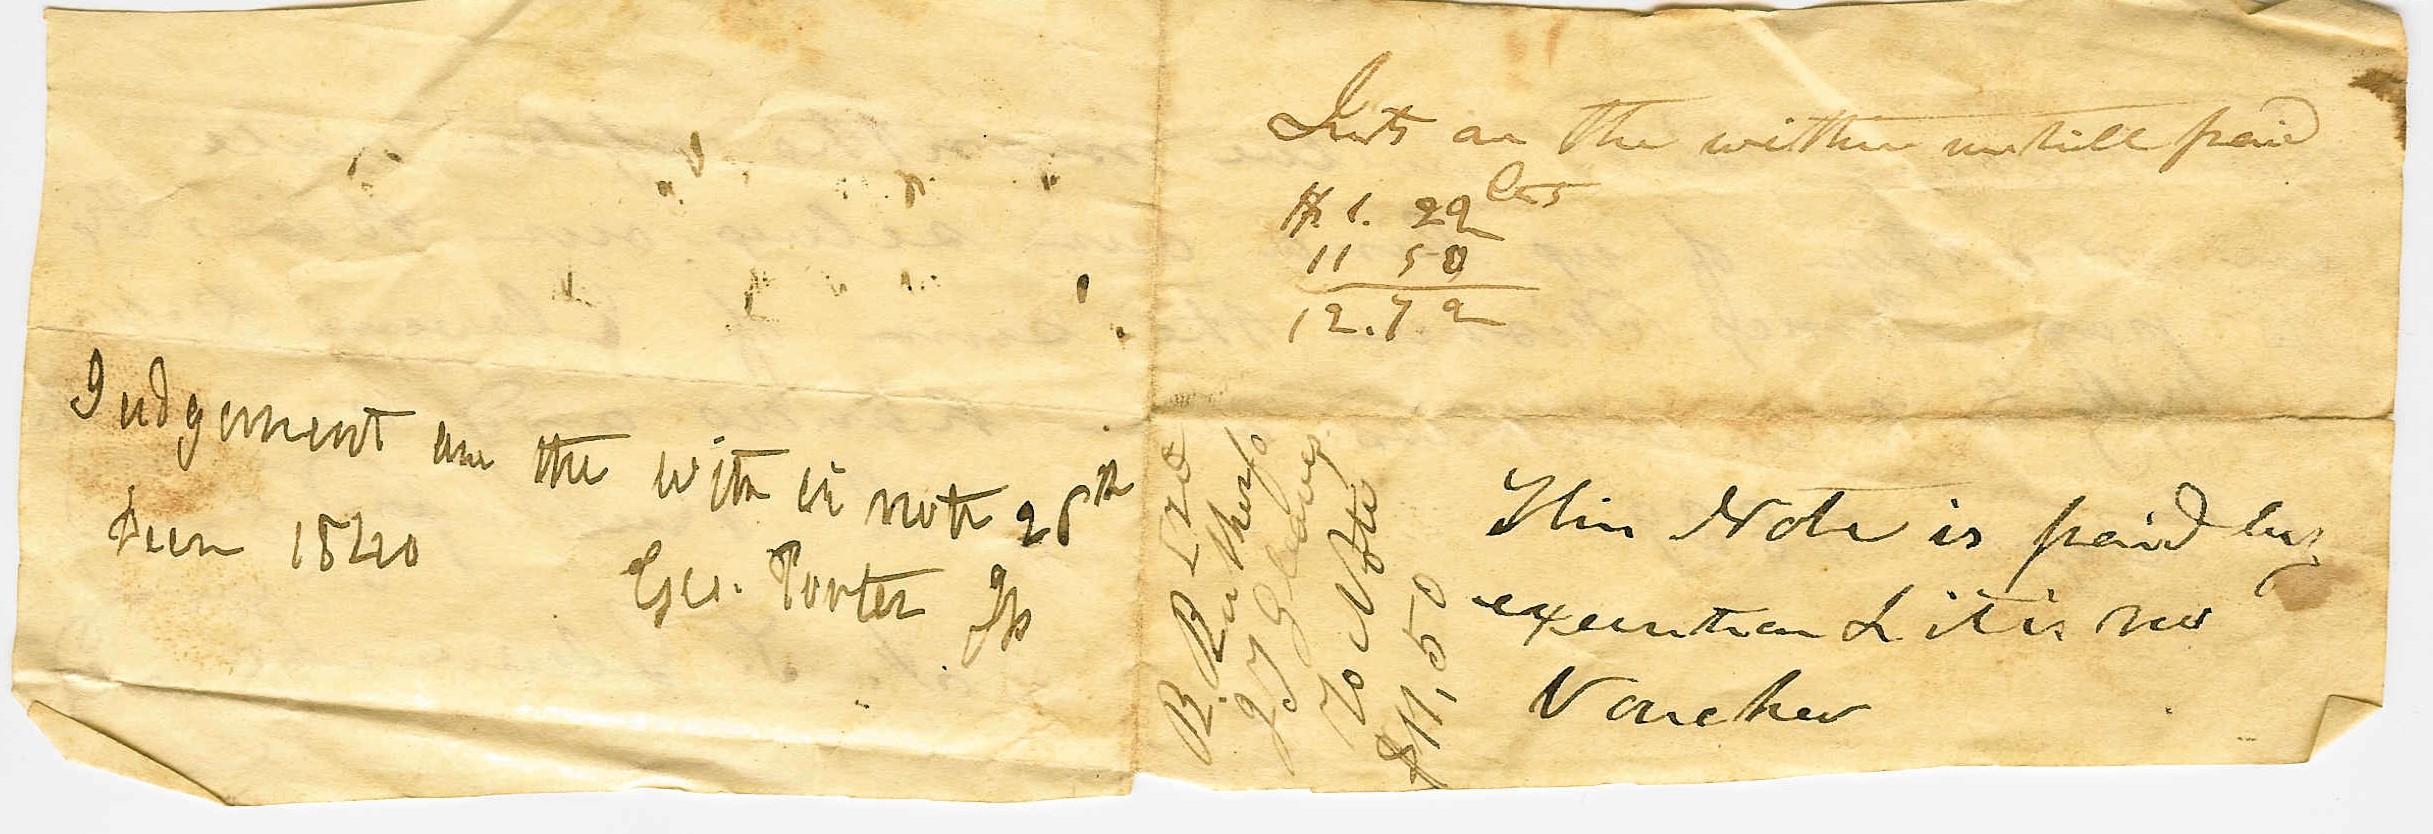 Judgement on the with in note 28th
Jun 1840
Geo. Porter Jp
Ints on the within untill paid
$1. 29 cts
11 50
12.79
B. Rutherfo
To Note
$11,50
This Note is paid by
execution & it is no
Voucher